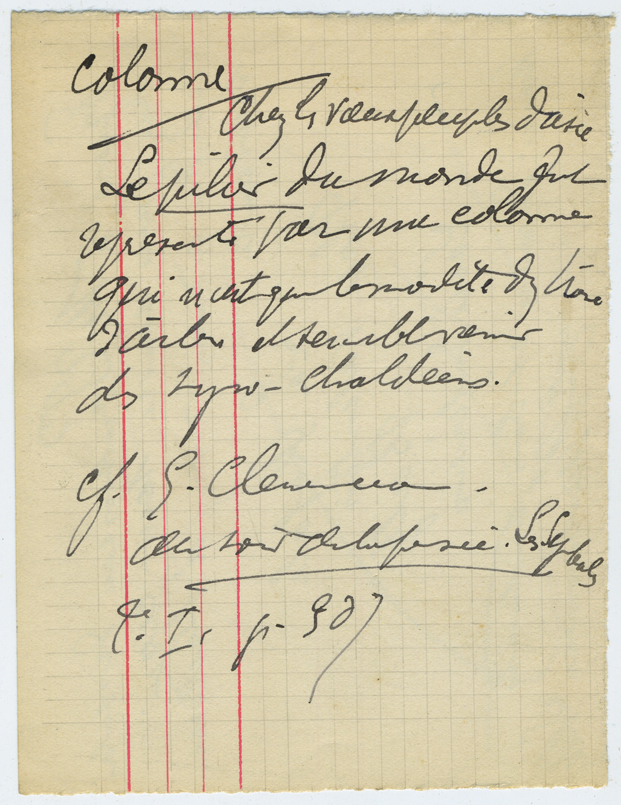 colonne
Chez les vieux peuples d'asie
Le pilier du monde fut
représenté par une colonne
qui n'est que le modèle du tronc
d'arbre et semble venir
des syro-Chaldéens.
cf. G. Clemenceau.
au soir de la pensée.
T. I, p.